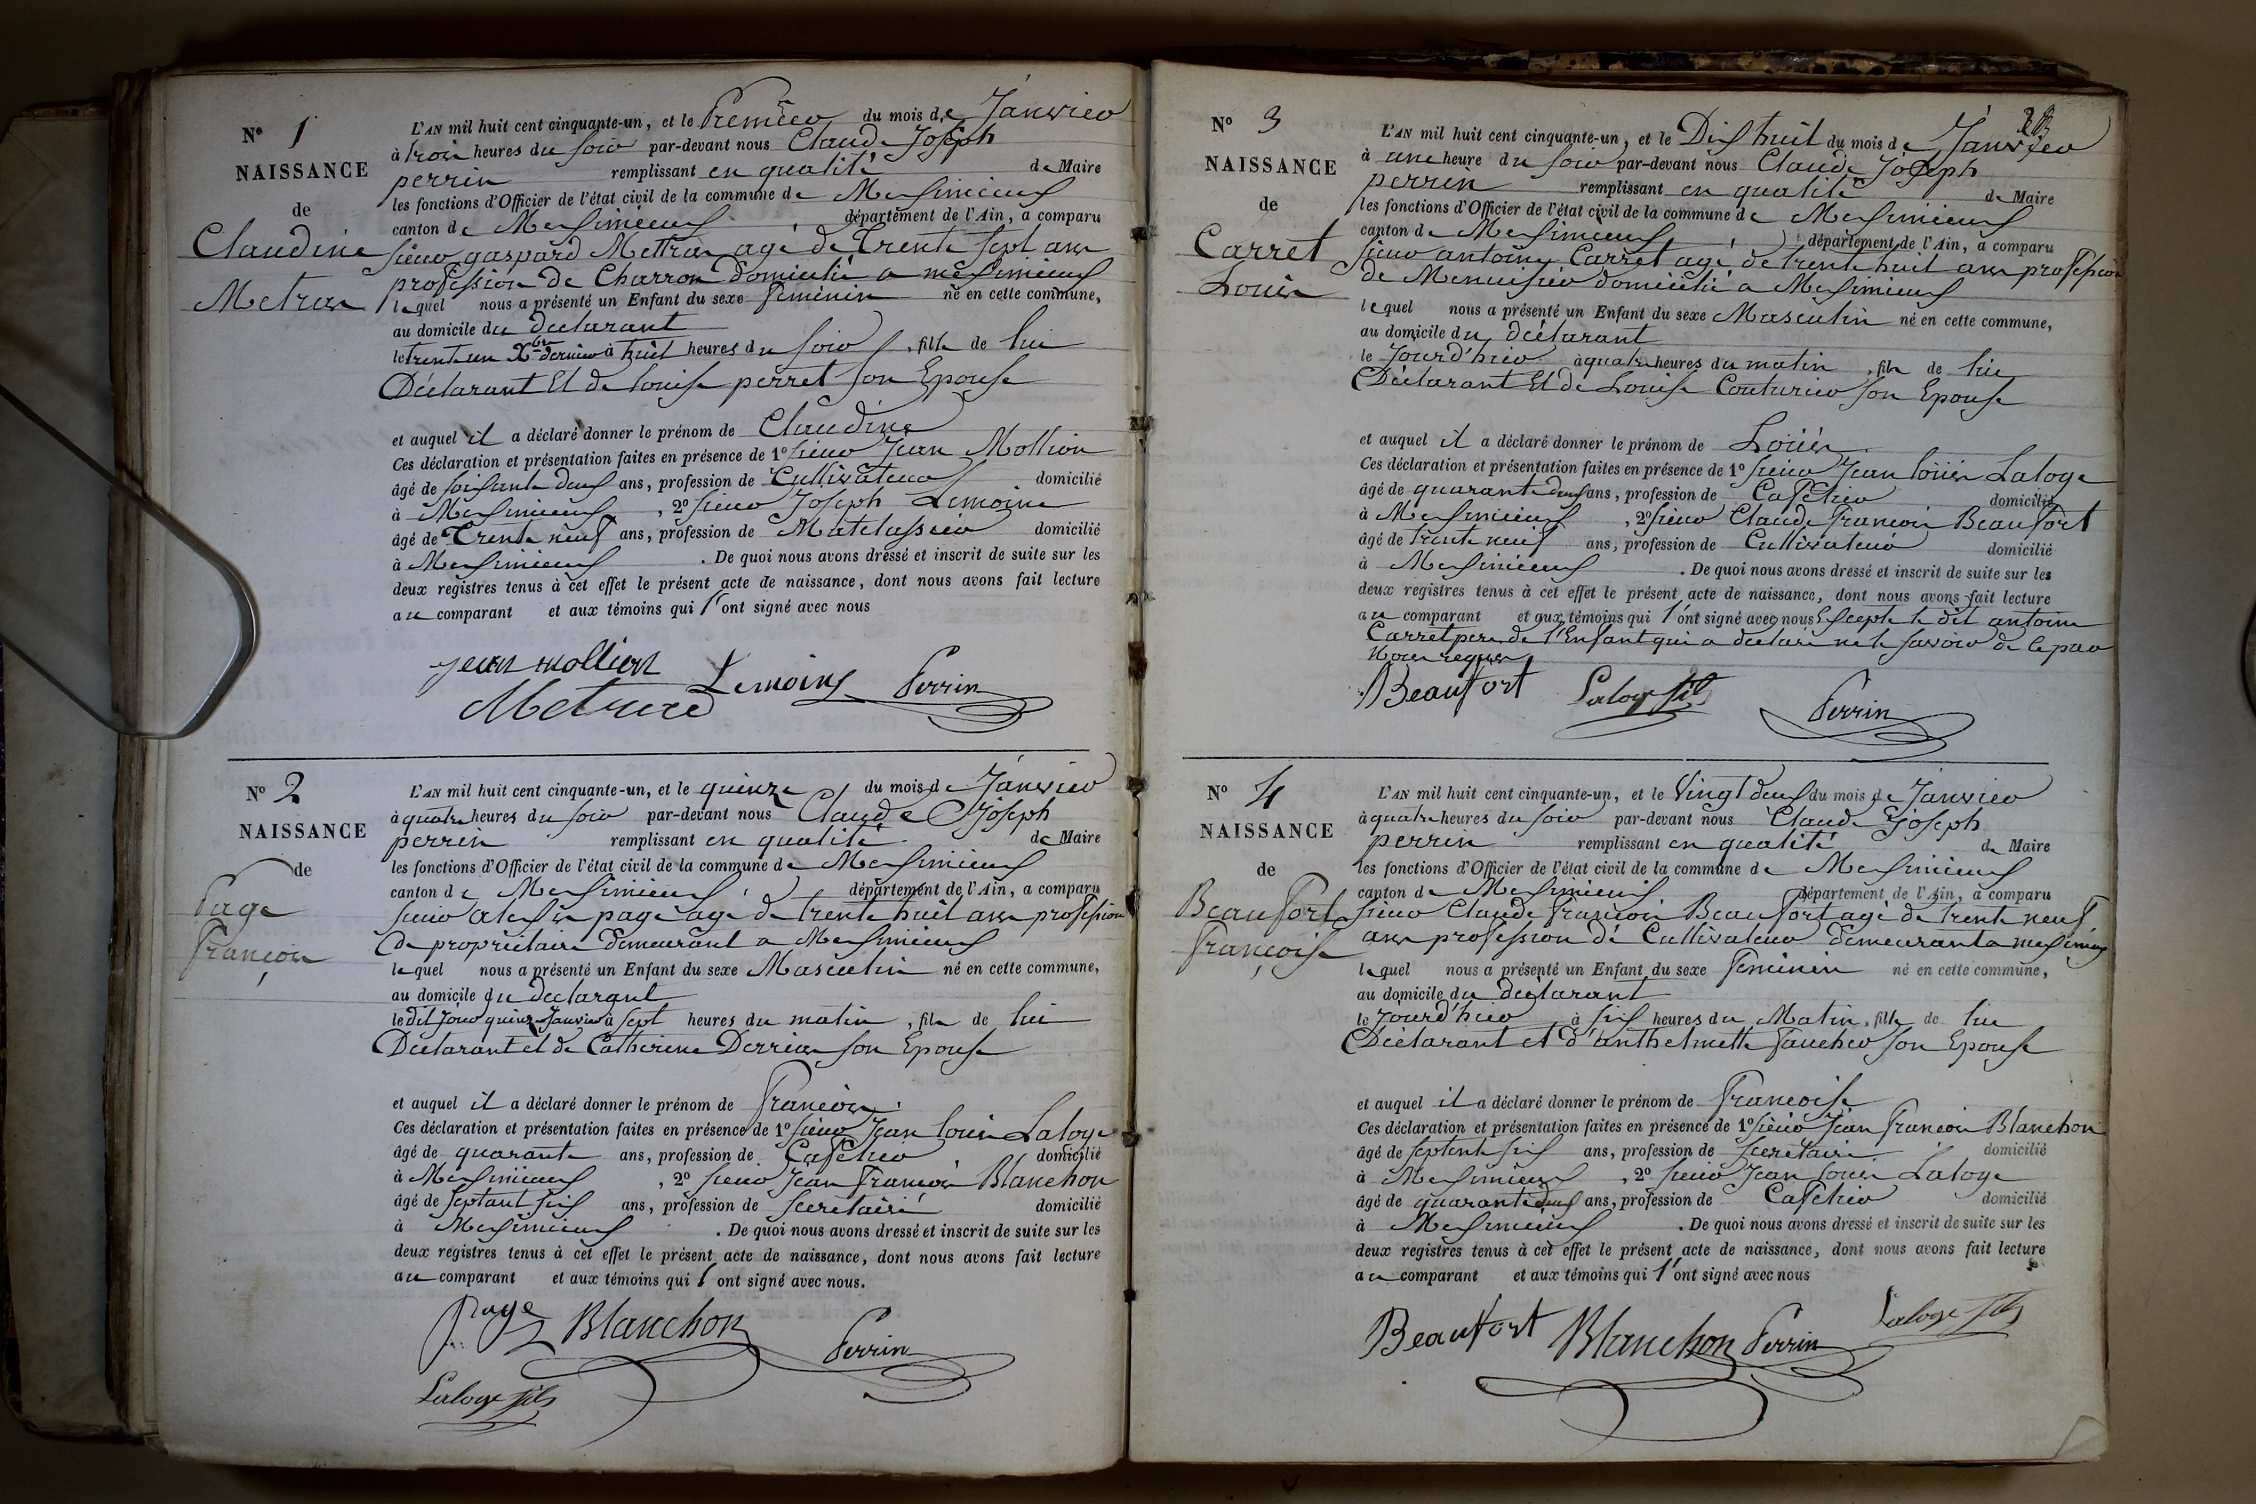 N° 1
NAISSANCE
de
Claudine
Metras
L'AN mil huit cent cinquante-un, et le Premier du mois de Janvier
à trois heures du soir par-devant nous Claude Joseph
perrin remplissant en qualité de Maire
les fonctions d'Officier de l'état civil de la commune de Meximieux
canton de Meximieux département de l'Ain, a comparu
sieur gaspard Mettras agé de Trente sept ans
profession de Charron domicilié a meximieux
lequel nous a présenté un Enfant du sexe feminin né en cette commune,
au domicile du declarant
le trente un Xbre dernier à huit heures du soir, fille de lui
Déclarant Et de louise perret son Epouse
et auquel il a déclaré donner le prénom de Claudine
Ces déclaration et présentation faites en présence de 1° sieur Jean Mollion
âgé de soixante deux ans, profession de Cultivateur domicilié
à Meximieux, 2° sieur Joseph Lemoine
âgé de Trente neuf ans, profession de Matelassier domicilié
à Meximieux. De quoi nous avons dressé et inscrit de suite sur les
deux registres tenus à cet effet le présent acte de naissance, dont nous avons fait lecture
au comparant et aux témoins qui l'ont signé avec nous
jean mollion
Lemoine Perrin
N° 2
NAISSANCE
de
Page
François
L'AN mil huit cent cinquante-un, et le quinze du mois de Janvier
à quatre heures du soir par-devant nous Claude Joseph
perrin remplissant en qualité de Maire
les fonctions d'Officier de l'état civil de la commune de Meximieux
canton de Meximieux département de l'Ain, a comparu
sieur alexis page agé de trente huit ans profession
de propriétaire demeurant a Meximieux
lequel nous a présenté un Enfant du sexe Masculin né en cette commune,
au domicile du declarant
le dit jour quinze Janvier à sept heures du matin, fils de lui
Déclarant et de Catherine Derrias son Epouse
et auquel il a déclaré donner le prénom de François
Ces déclaration et présentation faites en présence de 1° sieur Jean louis Laloge
âgé de quarante ans, profession de Cafetier domicilié
à Meximieux, 2° sieur Jean François Blanchon
âgé de septant six ans, profession de secretaire domicilié
à Meximieux. De quoi nous avons dressé et inscrit de suite sur les
deux registres tenus à cet effet le présent acte de naissance, dont nous avons fait lecture
au comparant et aux témoins qui l'ont signé avec nous.
Page Blanchon Perrin
Laloge fils
N° 3
NAISSANCE
de
Carret
Louis
L'AN mil huit cent cinquante-un, et le Dix huit du mois de Janvier
à une heure du soir par-devant nous Claude Joseph
perrin remplissant en qualité de Maire
les fonctions d'Officier de l'état civil de la commune de Meximieux
canton de Meximieux département de l'Ain, a comparu
sieur antoine Carret agé de trente huit ans profession
de Menuisier domicilié a Meximieux
lequel nous a présenté un Enfant du sexe Masculin né en cette commune,
au domicile du déclarant
le Jourd'hier à quatre heures du matin, fils de lui
Déclarant Et de Louise Couturier son Epouse
et auquel il a déclaré donner le prénom de Louis
Ces déclaration et présentation faites en présence de 1° sieur Jean louis Laloge
âgé de quarante deux ans, profession de Cafetier domicilié
à Meximieux, 2° sieur Claude François Beaufort
âgé de trente neuf ans, profession de Cultivateur domicilié
à Meximieux. De quoi nous avons dressé et inscrit de suite sur les
deux registres tenus à cet effet le présent acte de naissance, dont nous avons fait lecture
au comparant et aux témoins qui l'ont signé avec nous Excepté le dit antoine
Carret pere de l'Enfant qui a declaré ne le savoir de ce par
Nous requis
Beaufort Laloge fils Perrin
N° 4
NAISSANCE
de
Beaufort
Françoise
L'AN mil huit cent cinquante-un, et le Vingt deux du mois de Janvier
à quatre heures du soir par-devant nous Claude Joseph
perrin remplissant en qualité de Maire
les fonctions d'Officier de l'état civil de la commune de Meximieux
canton de Meximieux département de l'Ain, a comparu
sieur Claude François Beaufort agé de trente neuf
ans profession de Cultivateur demeurant a meximieux
lequel nous a présenté un Enfant du sexe Feminin né en cette commune,
au domicile du déclarant
le Jourd'hier à six heures du Matin, fille de lui
Déclarant et d'anthelmette Faucher son Epouse
et auquel il a déclaré donner le prénom de Françoise
Ces déclaration et présentation faites en présence de 1° sieur Jean François Blanchon
âgé de septente six ans, profession de secretaire domicilié
à Meximieux, 2° sieur Jean louis Laloge
âgé de quarante deux ans, profession de Cafetier domicilié
à Meximieux. De quoi nous avons dressé et inscrit de suite sur les
deux registres tenus à cet effet le présent acte de naissance, dont nous avons fait lecture
au comparant et aux témoins qui l'ont signé avec nous
Beaufort Blanchon Perrin Laloge fils